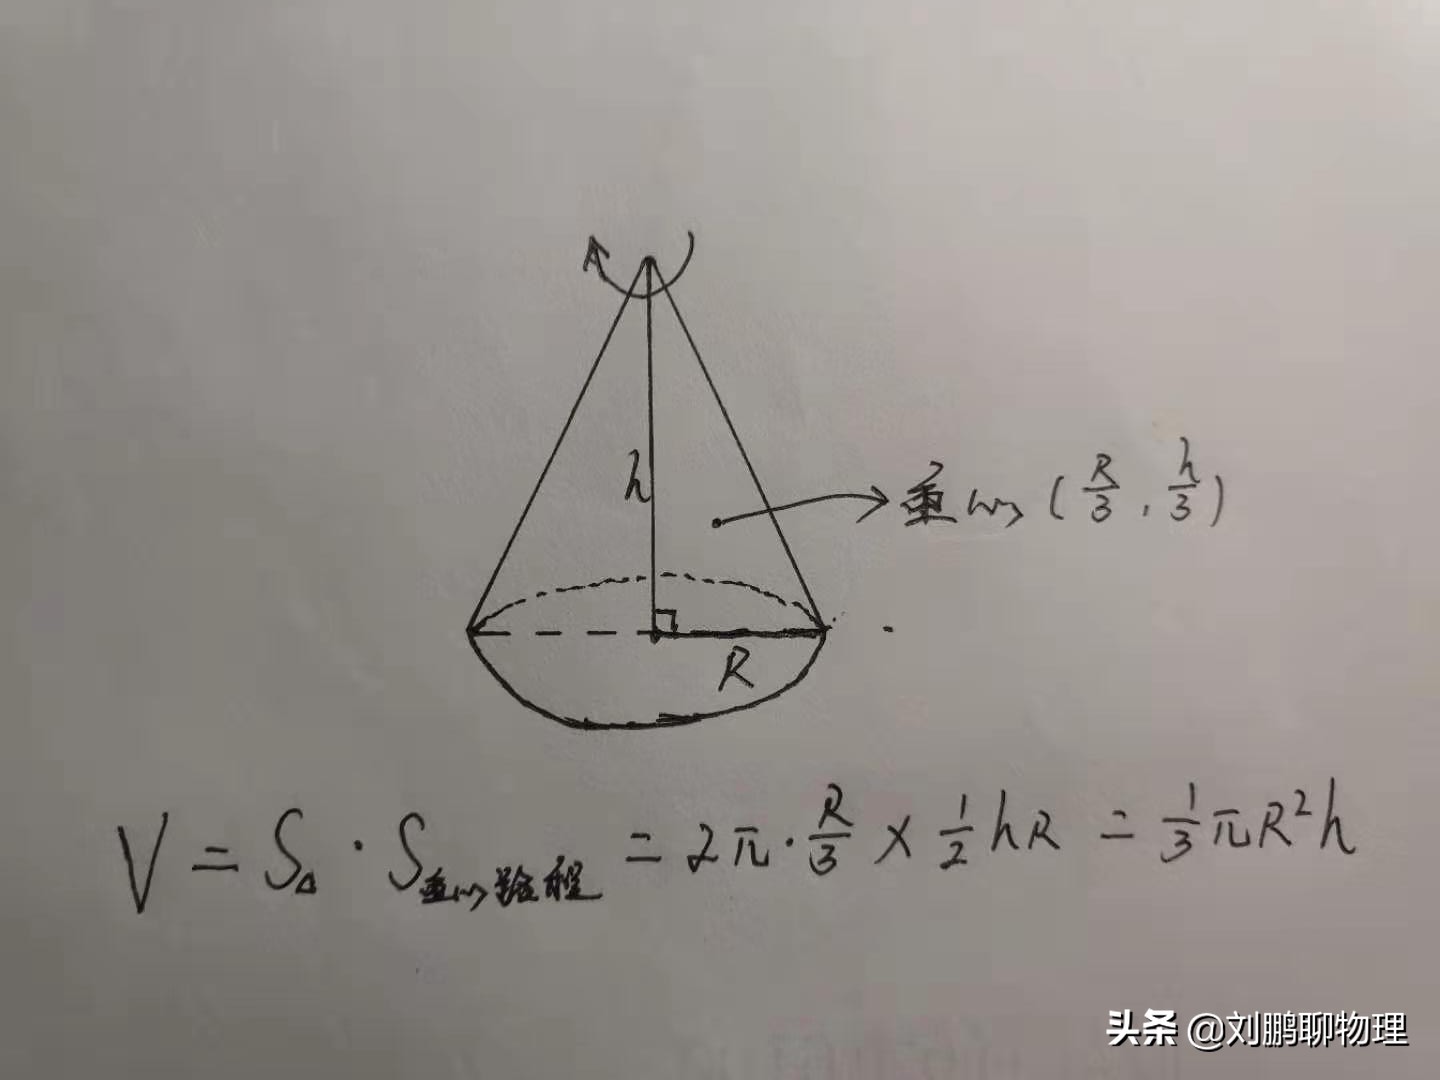 h
重心(R/3, h/3)
R
V = S△ · S重心路程 = 2π · R/3 × 1/2 hR = 1/3 πR²h
头条 @刘鹏聊物理